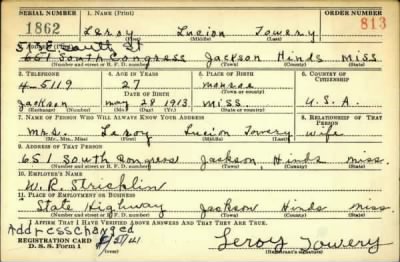 SERIAL NUMBER 1. NAME (Print) ORDER NUMBER
1862 Leroy Lucion Towery 813
(First) (Middle) (Last)
South St
651 South Congress Jackson Hinds Miss.
(Number and street or R. F. D. number) (Town) (County) (State)
3. TELEPHONE 4. AGE IN YEARS 5. PLACE OF BIRTH 6. COUNTRY OF CITIZENSHIP
4-5119 27 Monroe
DATE OF BIRTH (Town or county)
Jackson May 28 1913 Miss. U.S.A.
(Exchange) (Number) (Mo.) (Day) (Yr.) (State or country)
7. NAME OF PERSON WHO WILL ALWAYS KNOW YOUR ADDRESS 8. RELATIONSHIP OF THAT PERSON
Mrs. Leroy Lucion Towery Wife
(Mr., Mrs., Miss) (First) (Middle) (Last)
9. ADDRESS OF THAT PERSON
651 South Congress Jackson, Hinds Miss.
(Number and street or R. F. D. number) (Town) (County) (State)
10. EMPLOYER'S NAME
W. R. Stricklin
11. PLACE OF EMPLOYMENT OR BUSINESS
State Highway Jackson Hinds Miss
(Number and street or R. F. D. number) (Town) (County) (State)
I AFFIRM THAT I HAVE VERIFIED ABOVE ANSWERS AND THAT THEY ARE TRUE.
Address changed
REGISTRATION CARD
D. S. S. Form 1 Leroy Towery
(Registrant's signature)